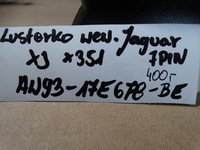 Lusterko wew. Jaguar
XJ x351 7PIN
400г
AW93-17E678-BE